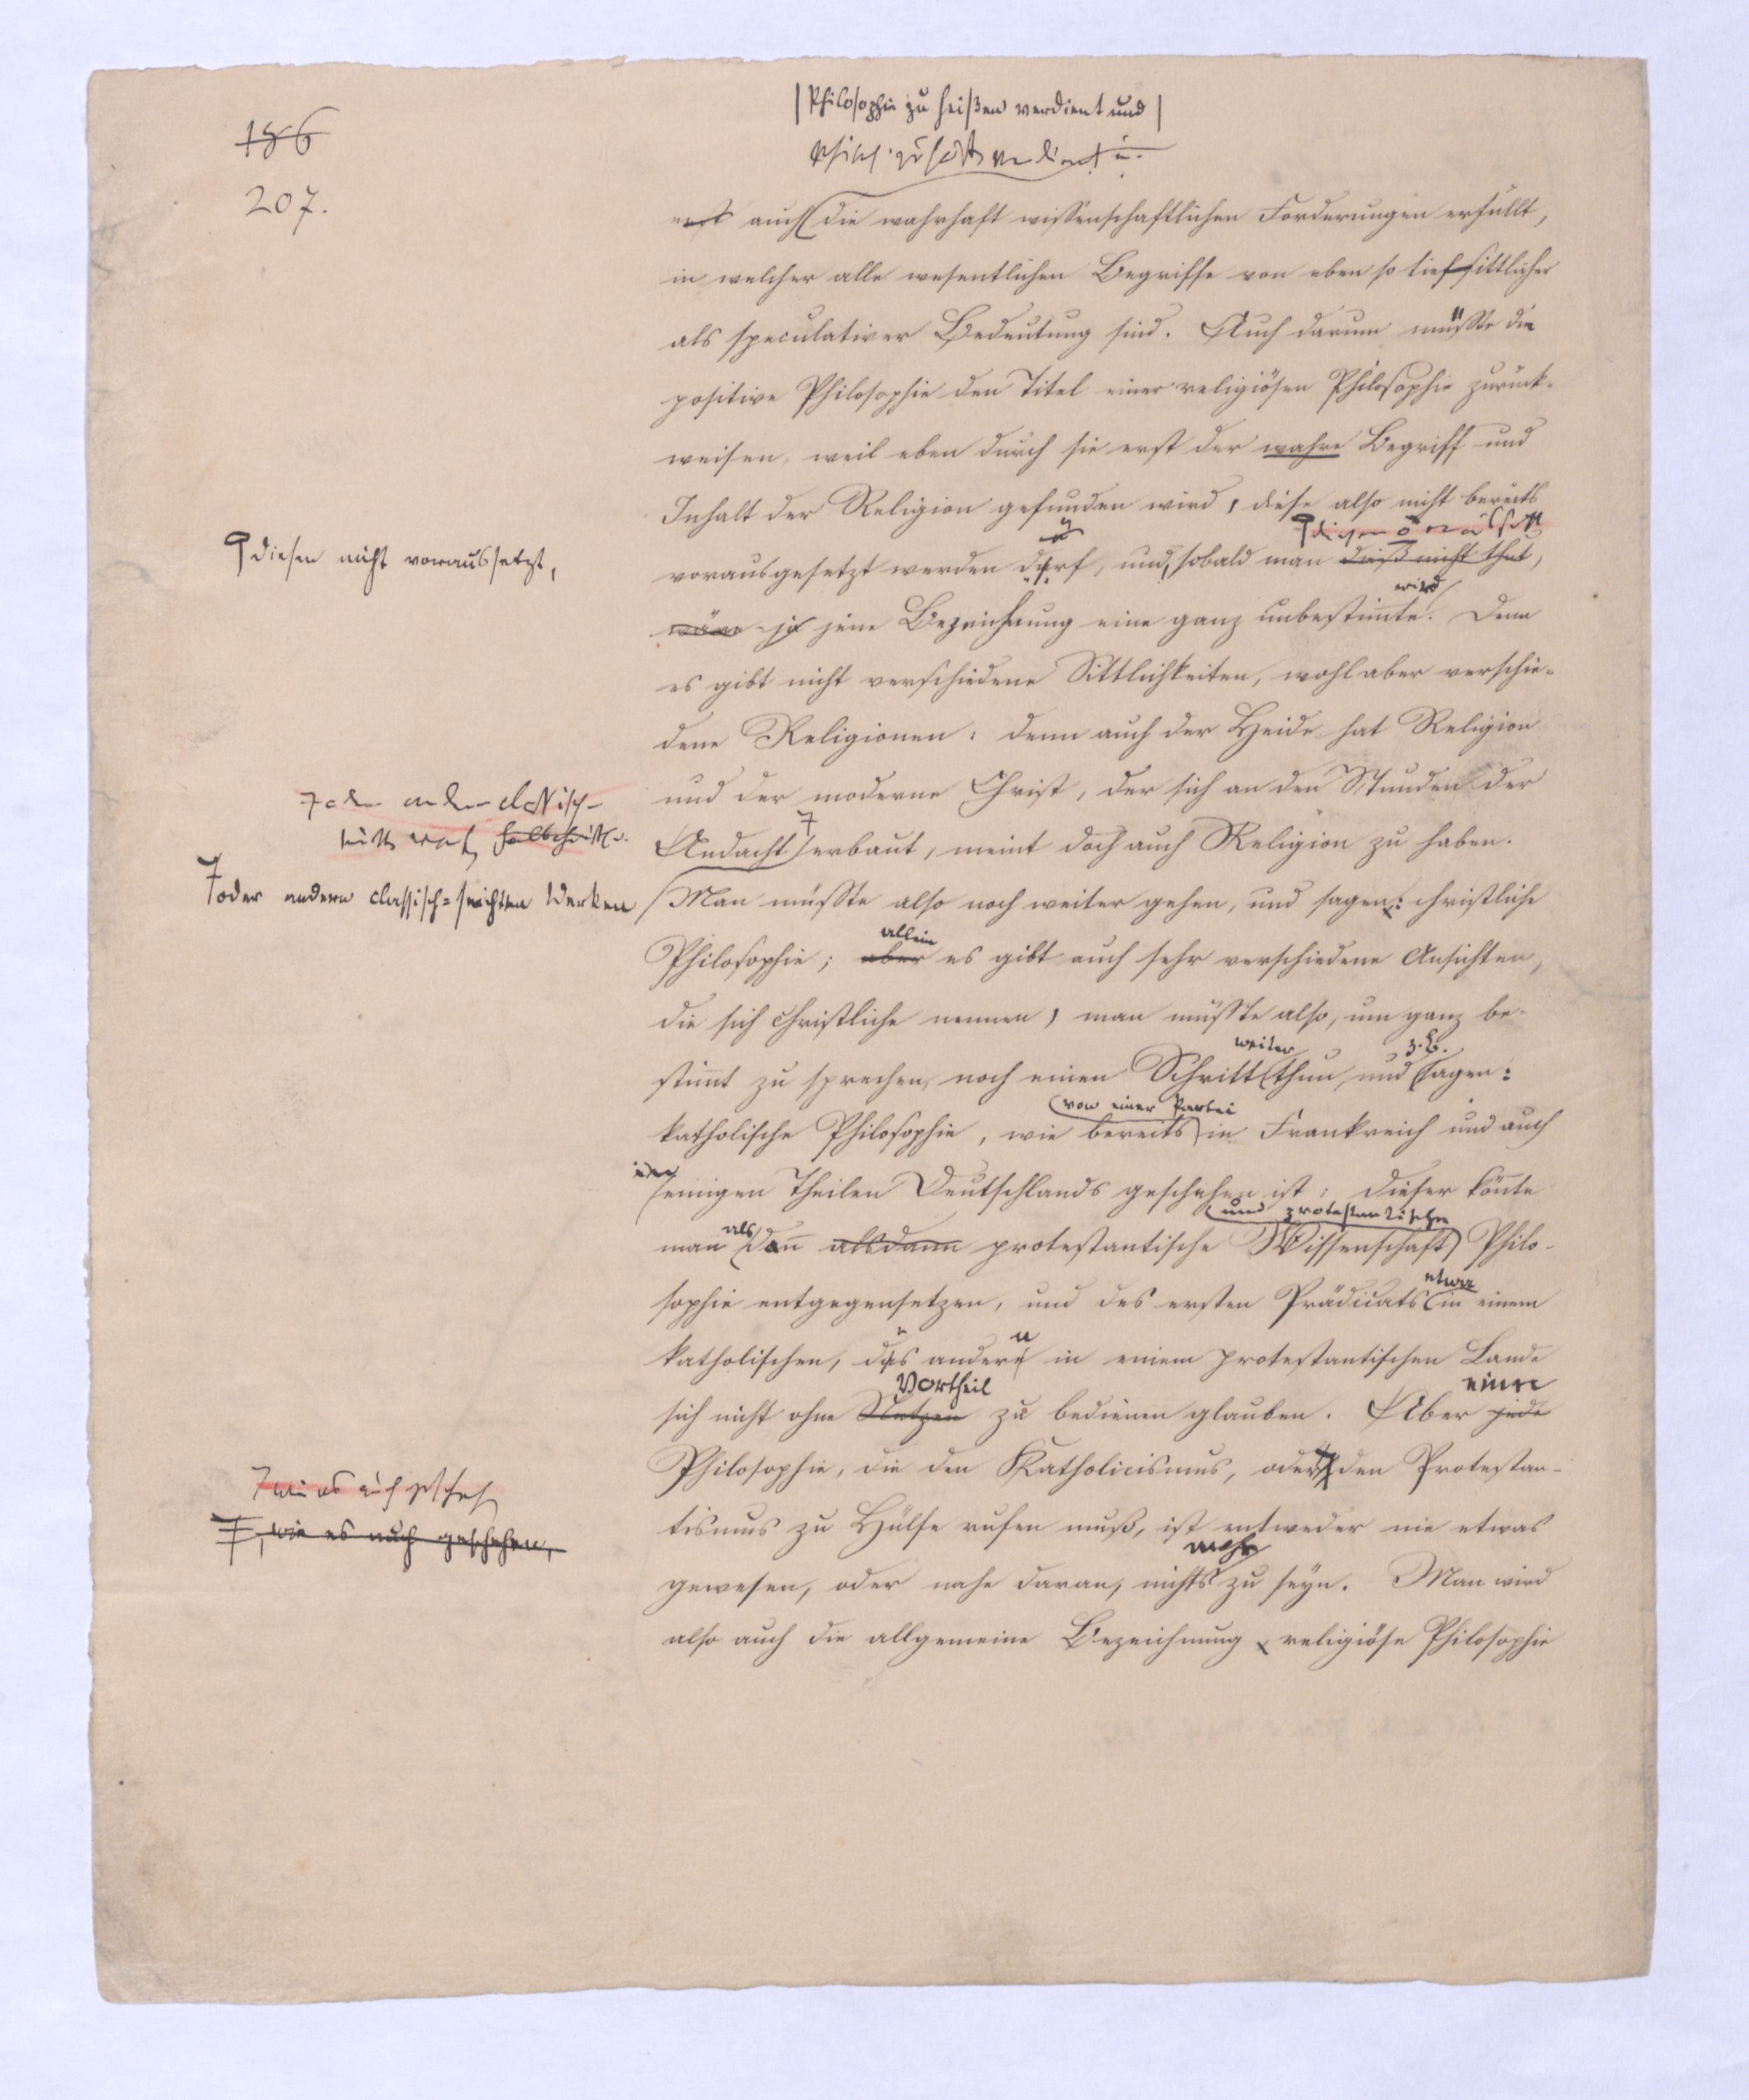 186
207.
Philosophie zu heißen verdient und
erst auch die wahrhaft wissenschaftlichen Forderungen erfüllt,
in welcher alle wesentlichen Begriffe von eben so tief sittlicher
als speculativer Bedeutung sind. Auch darum müßte die
positive Philosophie den Titel einer religiösen Philosophie zurück-
weisen, weil eben durch sie erst der wahre Begriff und
Inhalt der Religion gefunden wird, diese also nicht bereits
diesen nicht voraussetzt,
vorausgesetzt werden darf, und, sobald man dieß nicht thut,
wird
wäre ja jene Bezeichnung eine ganz unbestimte. Denn
es gibt nicht verschiedene Sittlichkeiten, wohl aber verschie-
dene Religionen: denn auch der Heide hat Religion
und der moderne Christ, der sich an den Stunden der
Andacht erbaut, meint doch auch Religion zu haben.
oder andern classisch=seichten Werken
Man müßte also noch weiter gehen, und sagen: christliche
allein
Philosophie; aber es gibt auch sehr verschiedene Ansichten,
die sich christliche nennen, man müßte also, um ganz be-
weiter z. B.
stimt zu sprechen, noch einen Schritt thun, und sagen:
von einer Partei
katholische Philosophie, wie bereits in Frankreich und auch
in
einigen Theilen Deutschlands geschehen ist; dieser könte
und protestantische
als
man dan alsdann protestantische Wissenschaft Philo-
etwa
sophie entgegensetzen, und des ersten Prädicats in einem
katholischen, des andern in einem protestantischen Lande
Vortheil eine
sich nicht ohne Nutzen zu bedienen glauben. Aber jede
Philosophie, die den Katholicismus, oder den Protestan-
wie es auch geschehen,
tismus zu Hülfe rufen muß, ist entweder nie etwas
mehr
gewesen, oder nahe daran, nichts zu seyn. Man wird
also auch die allgemeine Bezeichnung religiöse Philosophie